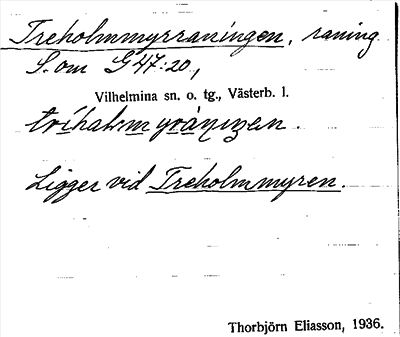 Treholmmyrraningen, raning
S. om G 47:20,
Vilhelmina sn. o. tg., Västerb. l.
Ligger vid Treholmmyren.
Thorbjörn Eliasson, 1936.